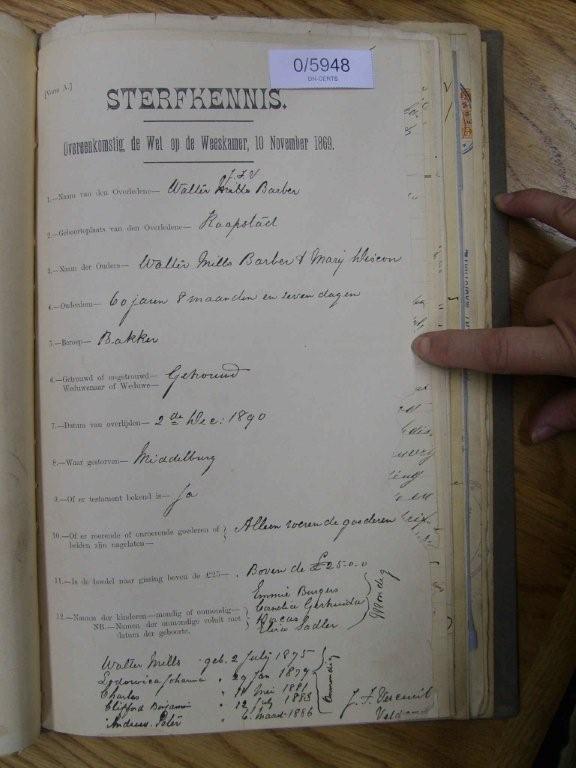 0/5948
DN-CERTS
[Vorm A.]
STERFKENNIS.
Overeenkomstig de Wet op de Weeskamer, 10 November 1869.
J.F.V
1.—Naam van den Overledene— Walter Mills Barber
2.—Geboorteplaats van den Overledene— Kaapstad
3.—Naam der Ouders— Walter Mills Barber & Mary
4.—Ouderdom— 60 jaren 8 maanden en zeven dagen
5.—Beroep— Bakker
6.—Getrouwd of ongetrouwd— Getrouwd
Weduwenaar of Weduwe—
7.—Datum van overlijden— 2de Dec: 1890
8.—Waar gestorven— Middelburg
9.—Of er testament bekend is— Ja
10.—Of er roerende of onroerende goederen of beiden zijn nagelaten— Alleen roerende goederen
11.—Is de boedel naar gissing boven de £25— Boven de £25-0-0
12.—Namen der kinderen—mondig of onmondig—
NB.—Namen der onmondige voluit met
datum der geboorte.
Emmie Burgers
Gertruida
Dorcas
Sadler
Mondig
Walter Mills geb. 2 Julij 1875
Lodowica Johanna " 29 Jan 1879
Charles " 11 Mei 1881
Clifford Benjamin " 12 July 1883
Andries Peter " 6 Maart 1886
Onmondig
J. F.